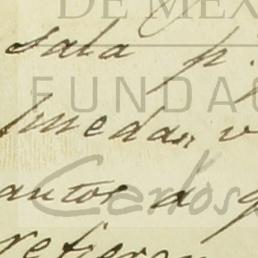 DE MÉX
sala p.
FUNDAC
puedan v
Carlos
autos d q
refieren